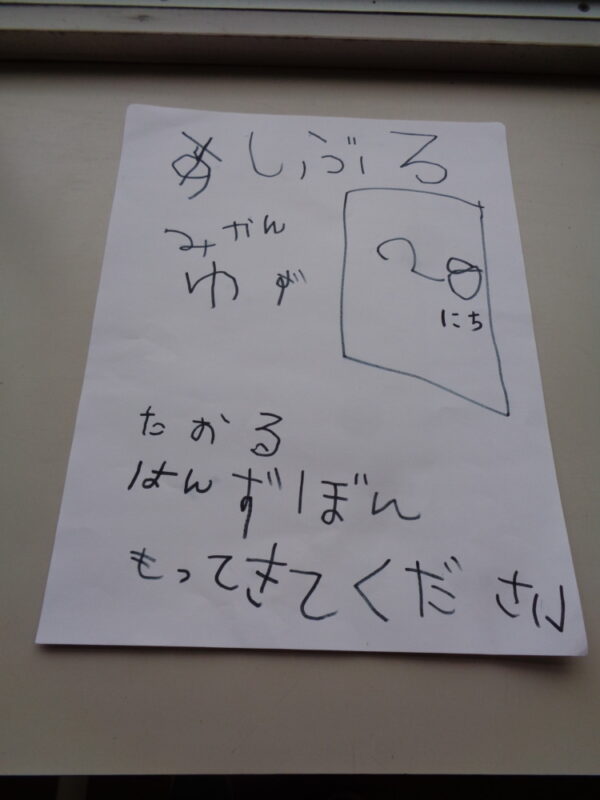 あしぶろ
みかん
ゆず
20
にち
たおる
はんずぼん
もってきてください